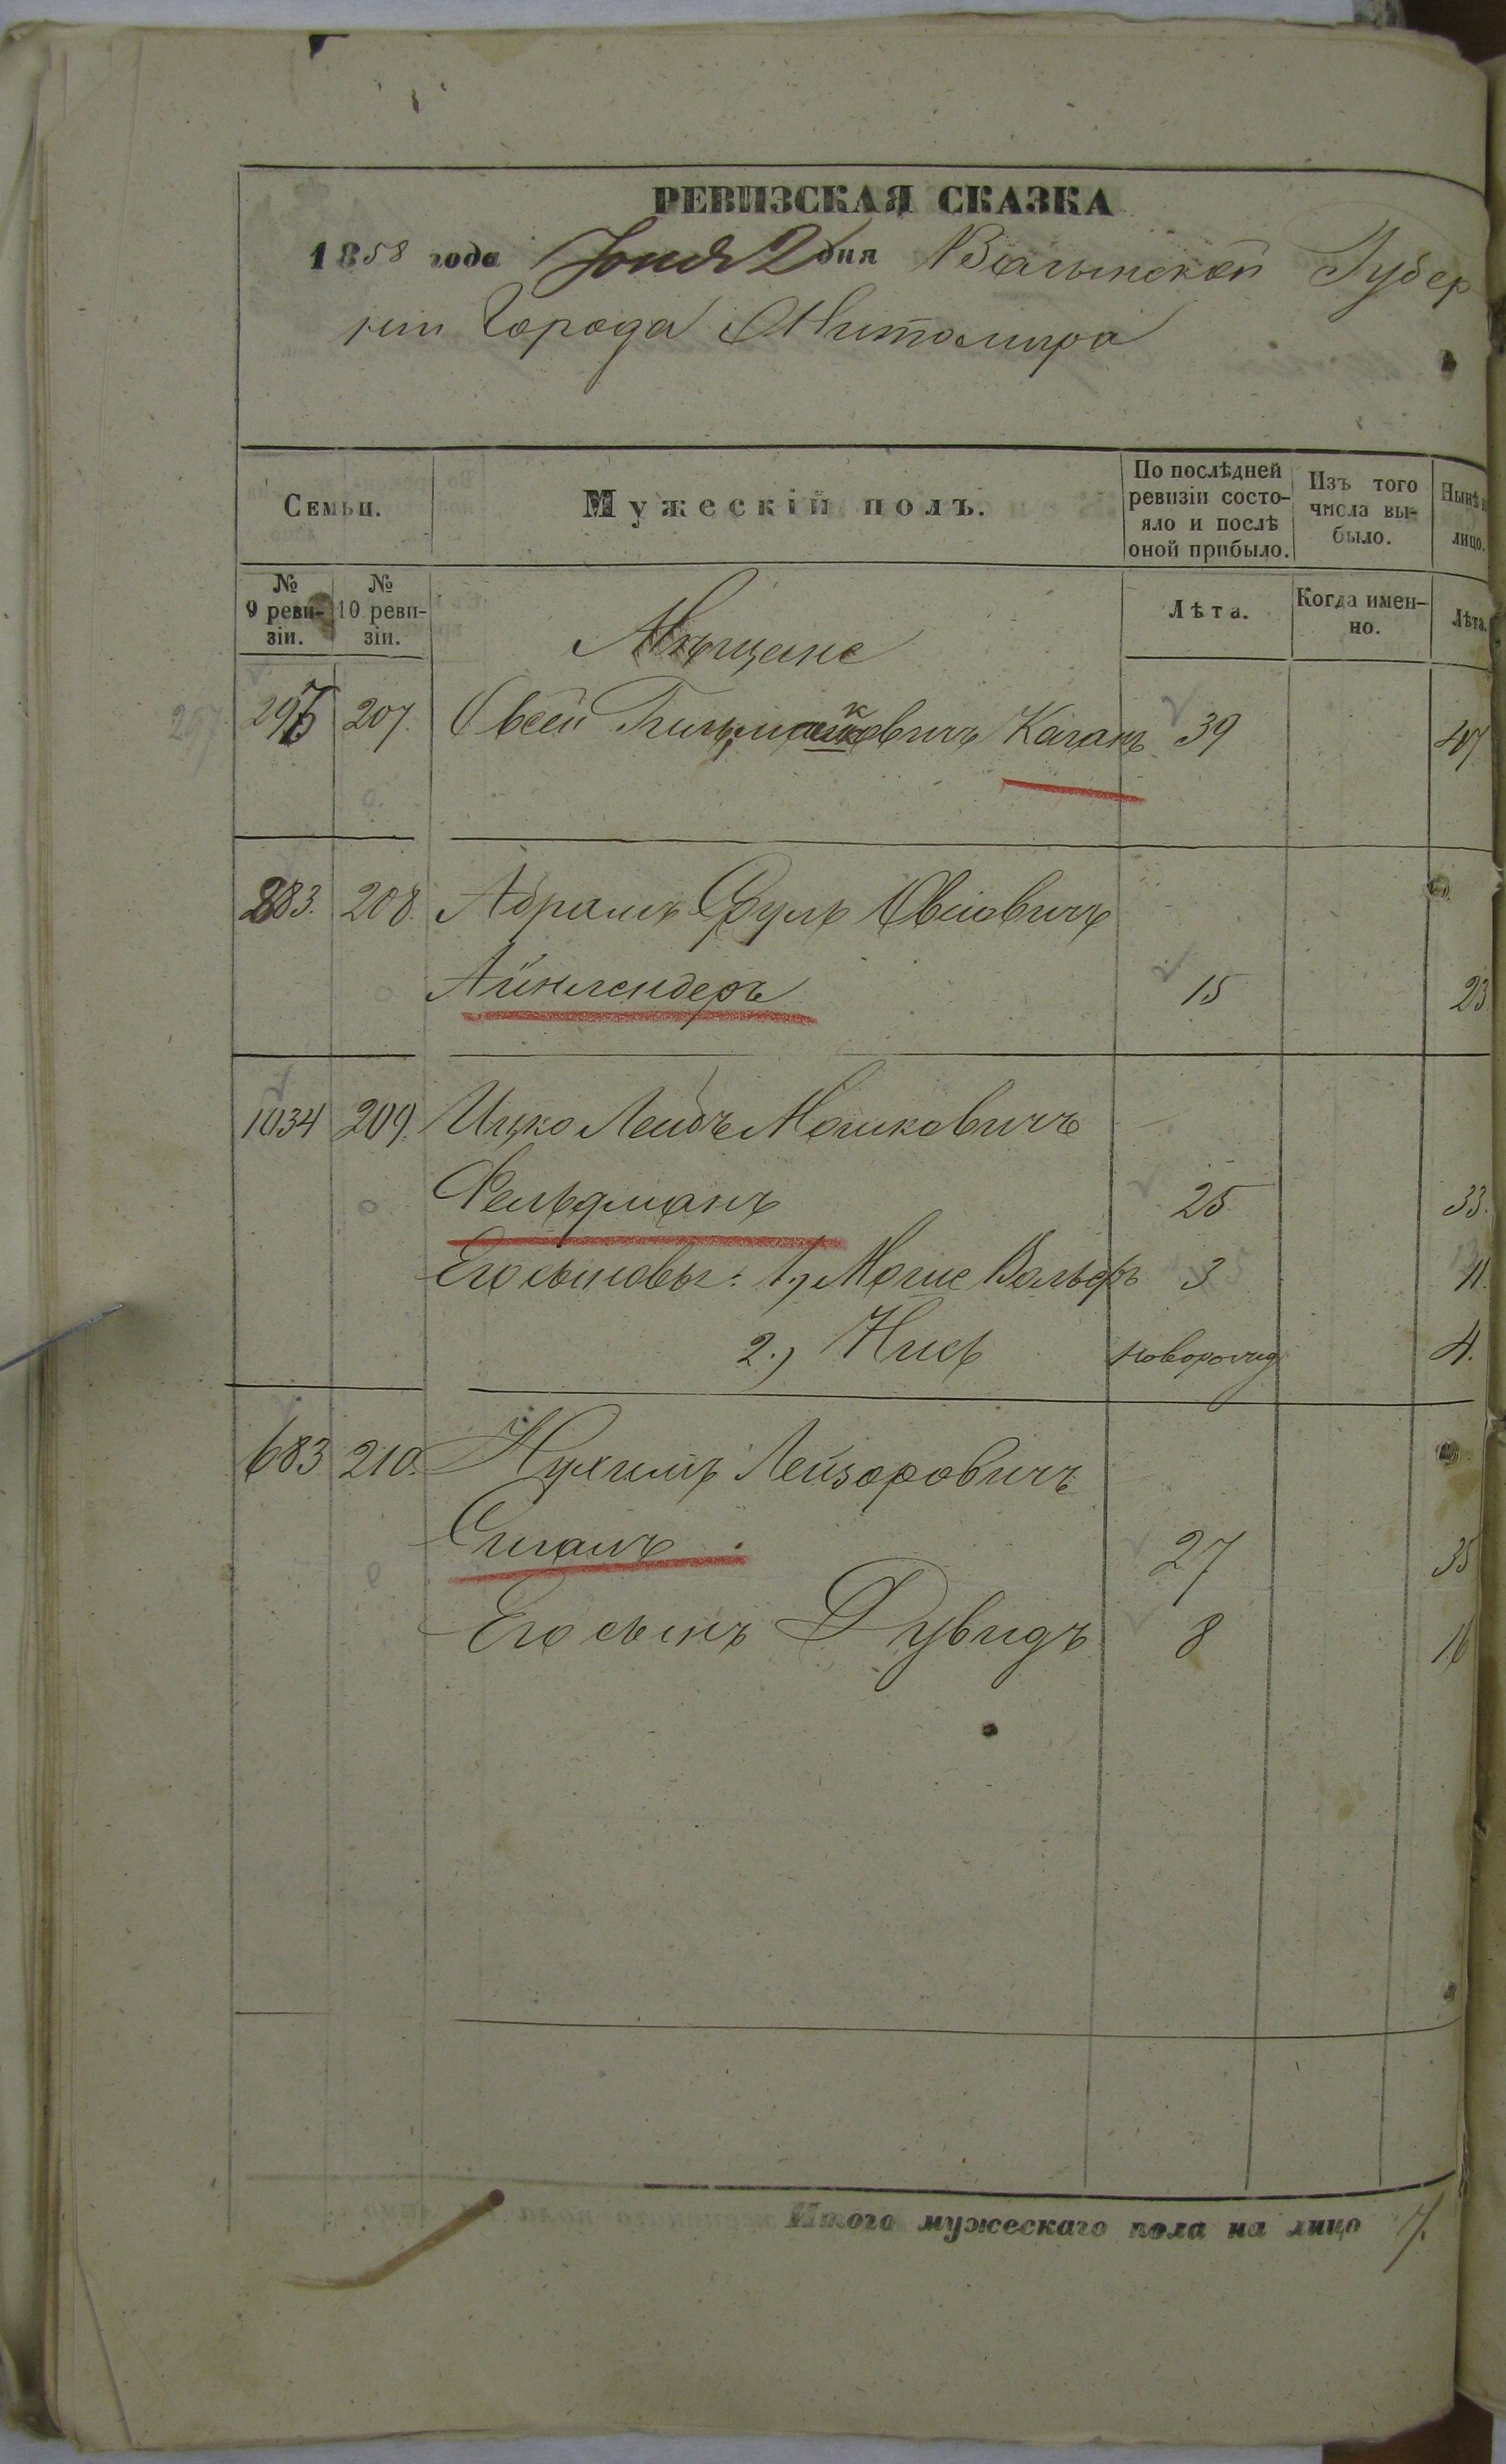 РЕВИЗСКАЯ СКАЗКА
1858 года Іюня 2 дня Волынской Губер
ніи Города Житомира
Семьи.
Мужескій полъ.
По послѣдней ревизіи состо-
яло и послѣ оной прибыло.
Изъ того числа вы-
было.
Нынѣ
лицо.
№ 9 реви-
зіи.
№ 10 реви-
зіи.
Лѣта.
Когда имен-
но.
Лѣта.
Мѣщане
207. Овсей Каганъ 39 47
883. 208. Абрамъ Сруль
Айнлендеръ 15 23
1034 209. Ицко Лейбъ Мошковичъ
Фельдманъ 25 33.
Его сыновья: 1, Вольфъ 3 11.
2.) новорожд 4.
683 210. Нухимъ Лейзоровичъ
Сигалъ 27 35
Его сынъ Дувидъ 8 16
Итого мужескаго пола на лицо 7.